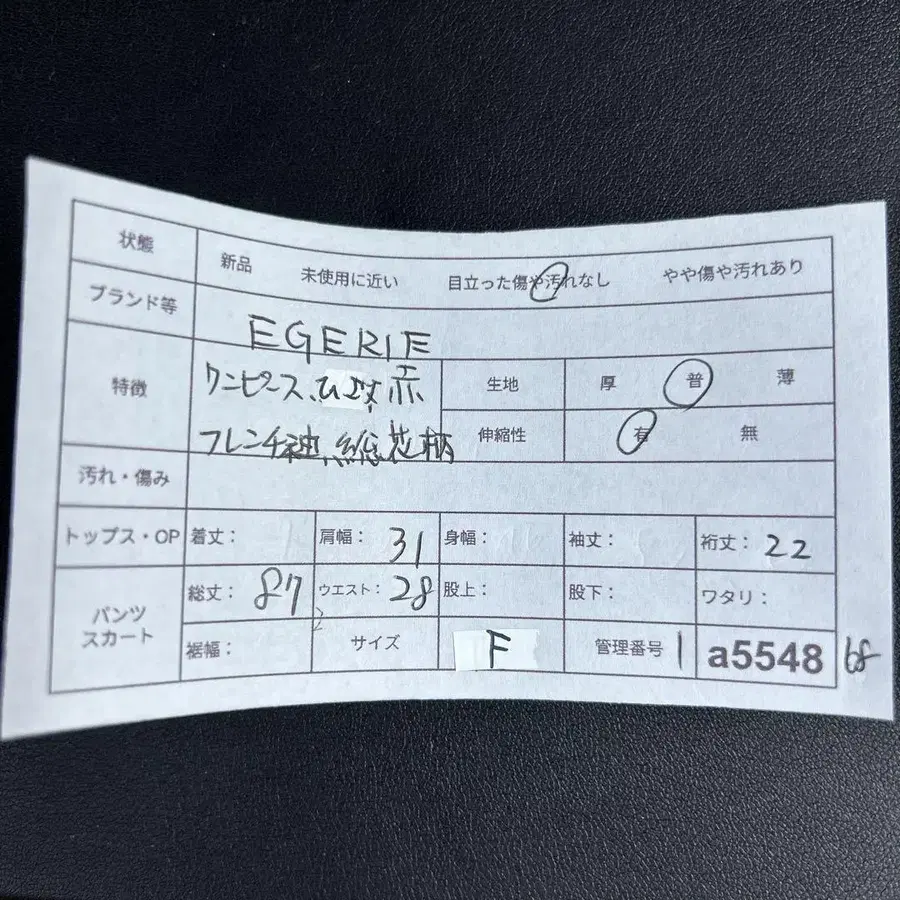 状態 新品 未使用に近い 目立った傷や汚れなし やや傷や汚れあり
ブランド等 EGERIE
特徴 ワンピース、ひざ丈 赤
フレンチ袖、総花柄
生地 厚 普 薄
伸縮性 有 無
汚れ・傷み
トップス・OP 着丈: 肩幅: 31 身幅: 袖丈: 裄丈: 22
パンツ スカート 総丈: 87 ウエスト: 28 股上: 股下: ワタリ:
裾幅: サイズ F 管理番号 1 a5548 68